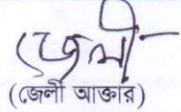 জেলী
(জেলী আক্তার)